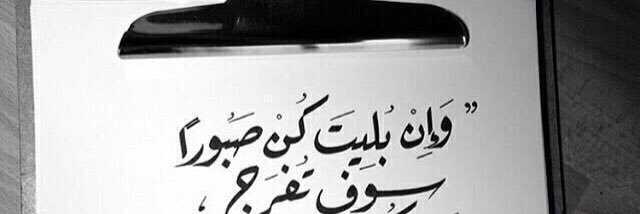 " وَإِنْ بُلِيتَ كُنْ صَبُورًا
سَوفَ تُفرَج ،